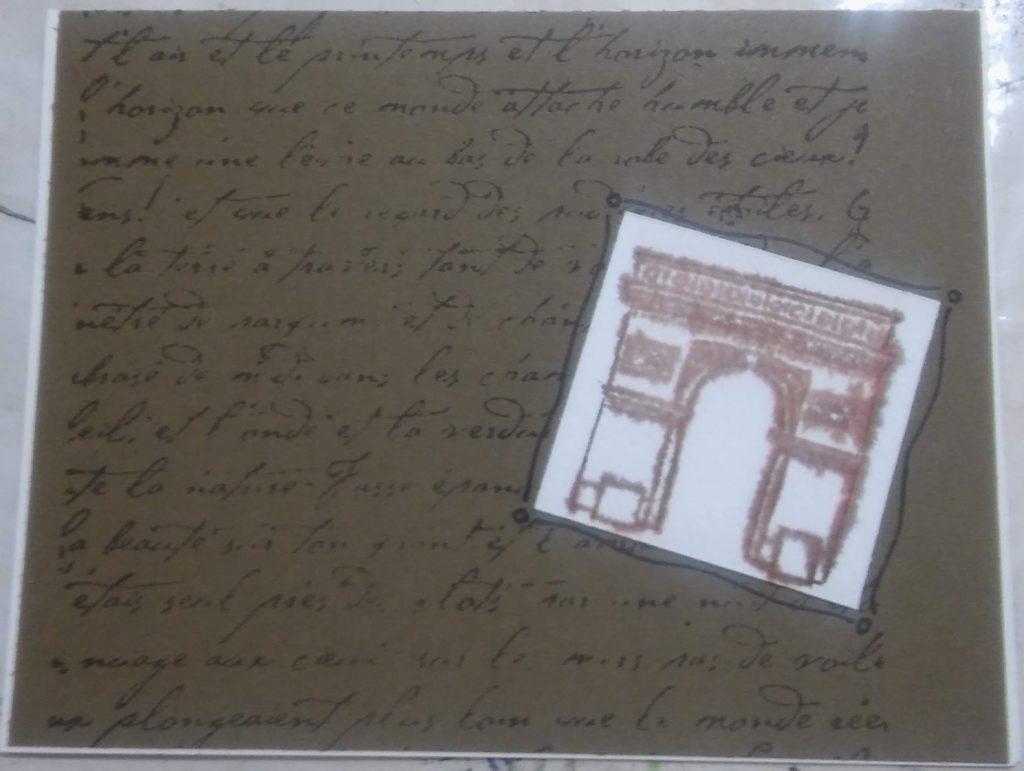 l'air et le printemps et l'horizon immen
l'horizon que ce monde attache humble et jo
omme une lèvre au bas de la robe des cieux!
ens! et que le regard des étoiles. G
la terre à travers tant de
nètre de parfum et de chan
brase de midi dans les cham
leil et l'onde et la verdu
te la nature Fasse épan
la beauté sur ton front et l'am
étais seul près des flots par une nuit d'é
nuage aux cieux sur les mers pas de voile
ux plongeaient plus loin que le monde rée